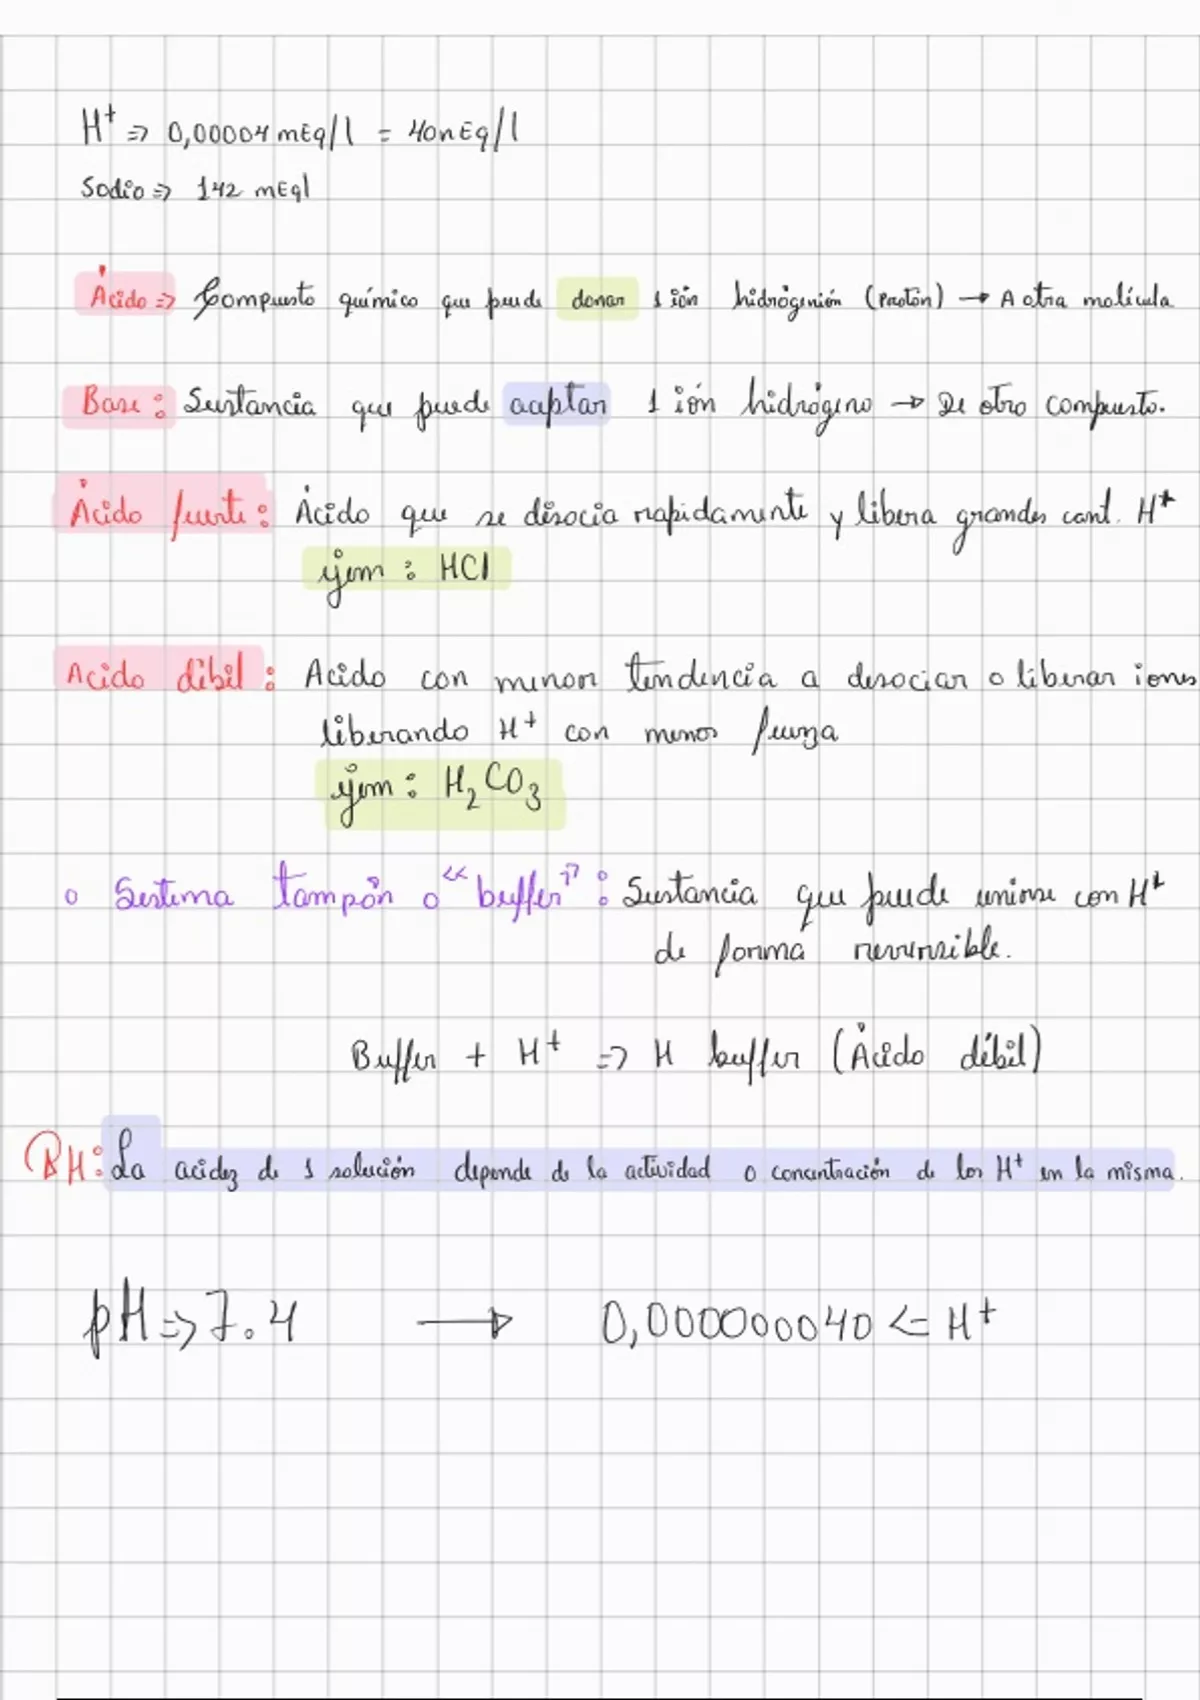 H⁺ => 0,00004 mEq/l = 40nEq/l
Sodio => 142 mEql
Ácido => Compuesto químico que puede donar 1 ión hidrógenión (protón) → A otra molécula
Base: Sustancia que puede aceptar 1 ión hidrógeno → De otro compuesto.
Ácido fuerte: Ácido que se disocia rapidamente y libera grandes cant. H⁺
ejem: HCl
Acido débil: Acido con menor tendencia a desociar o liberar iones
liberando H⁺ con menos fuerza
ejem: H₂CO₃
o Sistema tampón o "buffer": Sustancia que puede unirse con H⁺
de forma reversible.
Buffer + H⁺ => H buffer (Ácido débil)
PH: La acidez de 1 solución depende de la actividad o concentración de los H⁺ en la misma.
pH => 7.4 → 0,000000040 <= H⁺